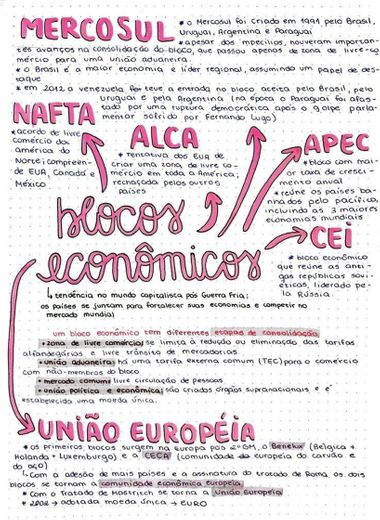 MERCOSUL
• o Mercosul foi criado em 1991 pelo Brasil,
Uruguai, Argentina e Paraguai
• apesar dos impecilios, houveram importan-
tes avanços na consolidação do bloco, que passou apenas de zona de livre-co
mércio para uma união aduaneira.
• o Brasil é a maior economia e líder regional, assumindo um papel de des-
taque
• em 2012 a venezuela teve a entrada no bloco aceita pelo Brasil, pelo
uruguai e pela Argentina (na época o Paraguai foi afas-
tado por uma ruptura democrática após o golpe parla-
mentar sofrido por Fernando Lugo)
NAFTA
• acordo de livre
comércio da
américa do
Norte; compreen-
de EUA, Canadá e
México
ALCA
• tentativa dos EUA de
criar uma zona de livre co-
mércio em toda a América;
rechaçada pelos outros
países
APEC
• bloco com mai-
or taxa de cresci-
mento anual
• reúne os países ba-
nhados pelo pacífico,
incluindo as 3 maiores
economias mundiais
blocos
econômicos
CEI
• bloco econômico
que reúne as anti-
gas repúblicas sovi-
éticas, liderado pe-
la Rússia.
↳ tendência no mundo capitalista pós Guerra Fria;
os países se juntam para fortalecer suas economias e competir no
mercado mundial
um bloco econômico tem diferentes etapas de consolidação
• zona de livre comércio: se limita à redução ou eliminação das tarifas
alfandegárias e livre trânsito de mercadorias.
• união aduaneira: há uma tarifa externa comum (TEC) para o comércio
com não-membros do bloco
• mercado comum: livre circulação de pessoas
• união política e econômica: são criados órgãos supranacionais e é
estabelecida uma moeda única.
UNIÃO EUROPÉIA
• os primeiros blocos surgem na europa pós 2ª GM, o Benelux (Bélgica +
Holanda + Luxemburgo) e a CECA (comunidade da européia do carvão e
do aço)
↳ Com a adesão de mais países e a assinatura do tratado de Roma os dois
blocos se tornam a comunidade econômica européia
• Com o Tratado de Mastrich se torna a União Européia
• 2002 → adotada moeda única → EURO